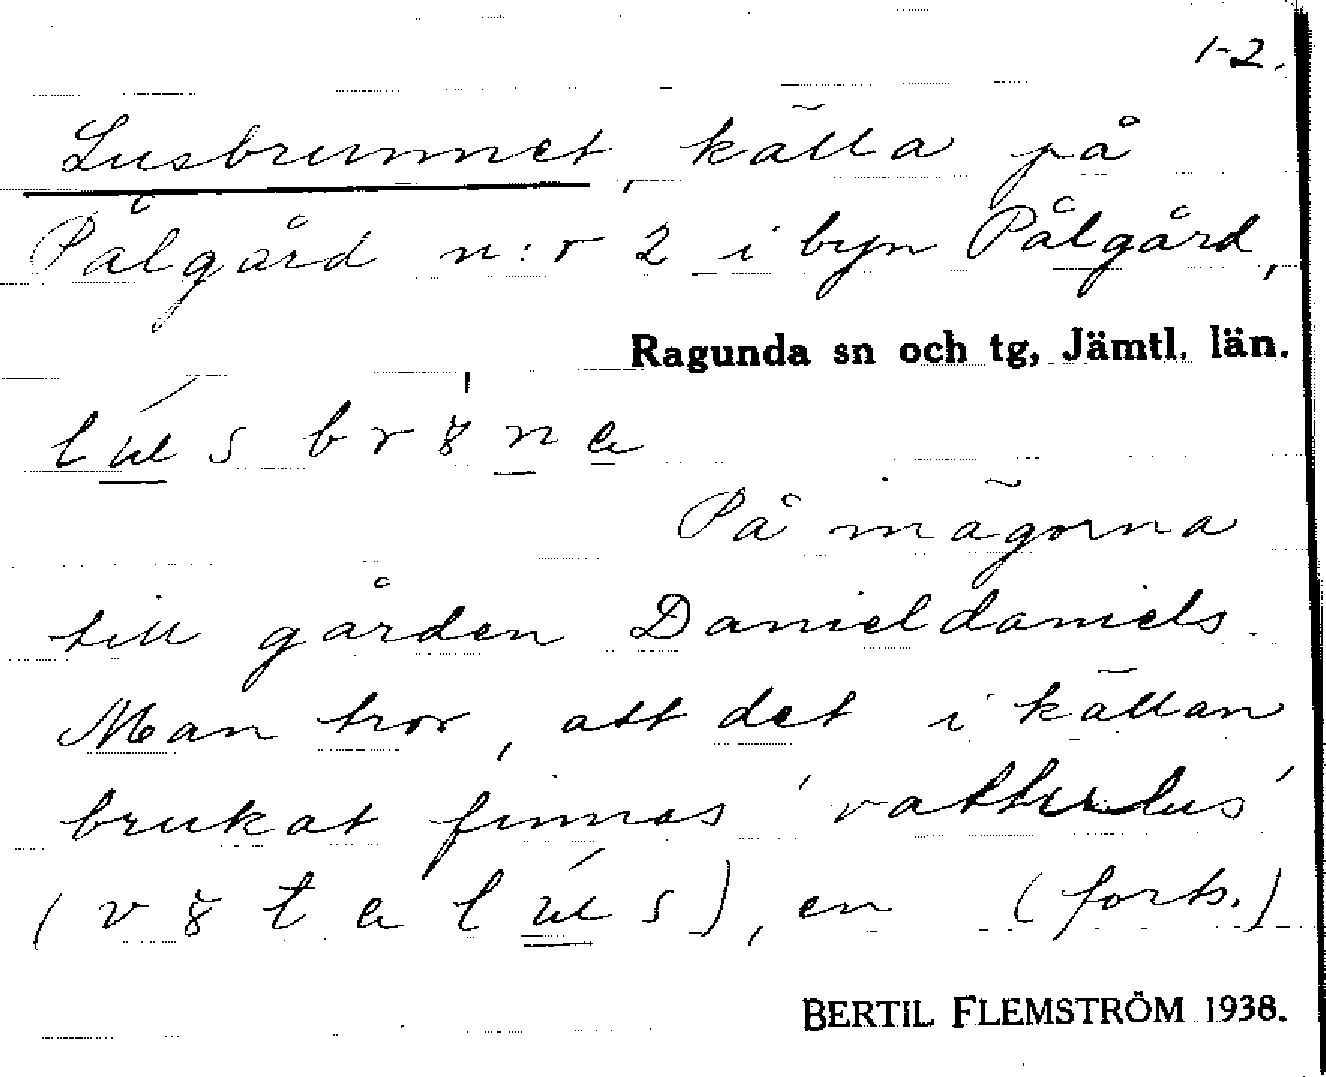 1-2.
Lusbrunnet, källa på
Pålgård n:r 2 i byn Pålgård,
Ragunda sn och tg, Jämtl. län.
På mägorna
till gården Danieldaniels.
Man tror, att det i källan
brukat finnas 'vattulus'
en (forts.)
BERTIL FLEMSTRÖM 1938.